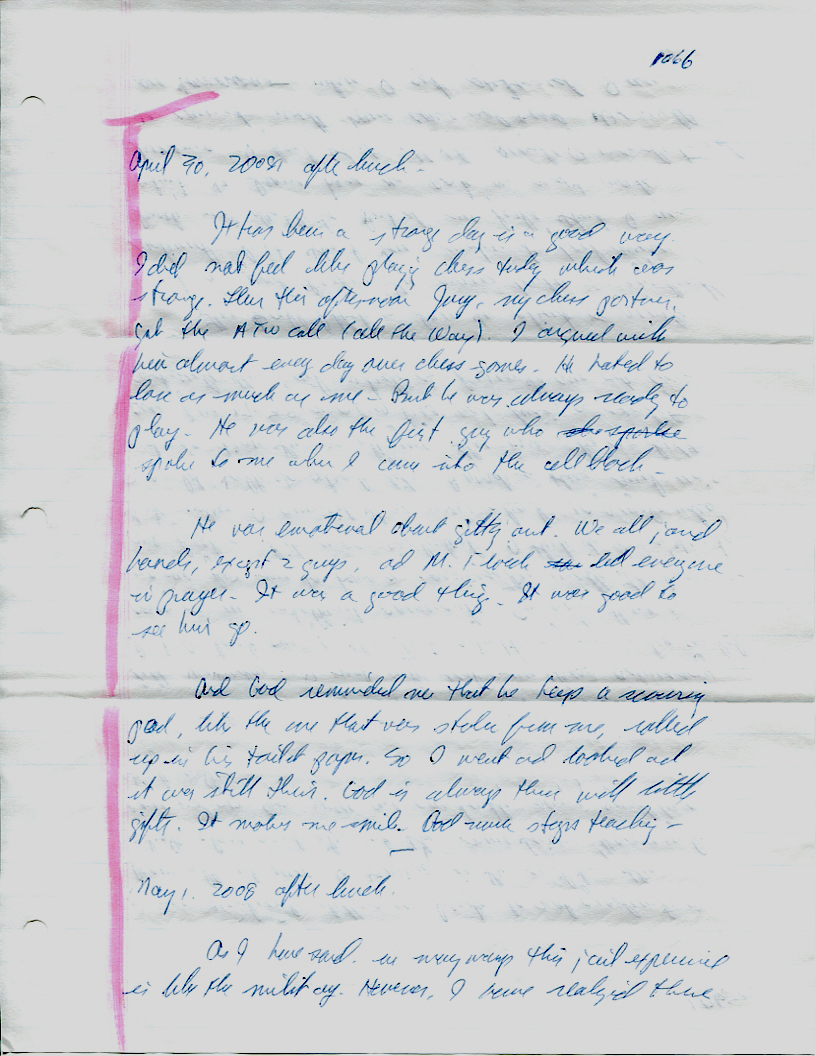 1 of 6
April 30, 2008 after lunch.
It has been a strange day in a good way.
I did not feel like playing chess today which was
strange. Then this afternoon my chess partner,
got the ATW call (all the way). I argued with
him almost every day over chess games. He hated to
lose as much as me - But he was always ready to
play. He was also the first guy who
spoke to me when I came into the cell block -
He was emotional about getting out. We all joined
hands, except 2 guys, and M. led everyone
in prayer. It was a good thing. It was good to
see him go.
And God reminded me that he keeps a scouring
pad, like the one that was stolen from me, rolled
up in his toilet paper. So I went and looked and
it was still there. God is always there with little
gifts. It makes me smile. God never stops teaching -
May 1, 2008 after lunch.
As I have said, in many ways this jail experience
is like the military. However, I have realized there